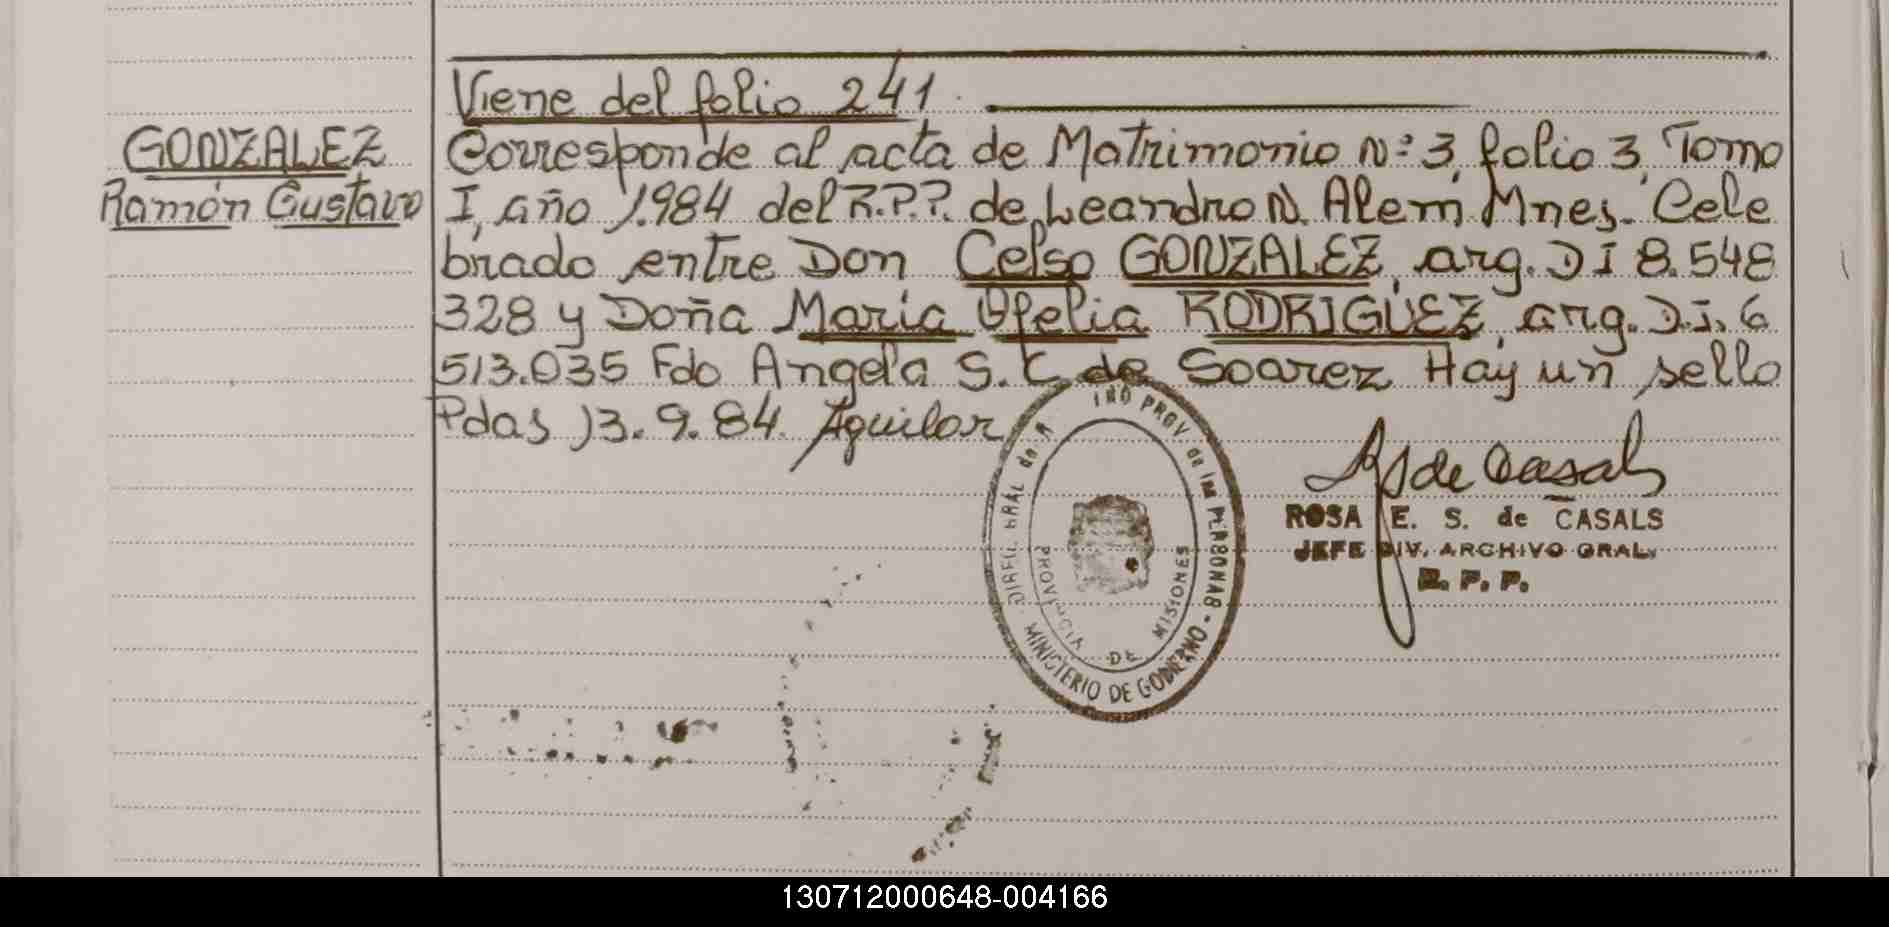 Viene del folio 241.
GONZALEZ
Ramón Gustavo
Corresponde al acta de Matrimonio Nº 3, folio 3, Tomo
I, año 1.984 del R.P.P. de Leandro N. Alem Mnes. Cele
brado entre Don Celso GONZALEZ, arg. DI 8.548
328 y Doña María Ofelia RODRIGUEZ, arg. D.I. 6
513.035 Fdo Angela S. C de Soarez Hay un sello
Pdas 13.9.84. Aguilar
DIREC. GRAL de R
TRO PROV. de las PERSONAS -
MINISTERIO DE GOBIERNO -
PROVINCIA DE MISIONES
de Casals
ROSA E. S. de CASALS
JEFE DIV. ARCHIVO GRAL.
R. P. P.
130712000648-004166